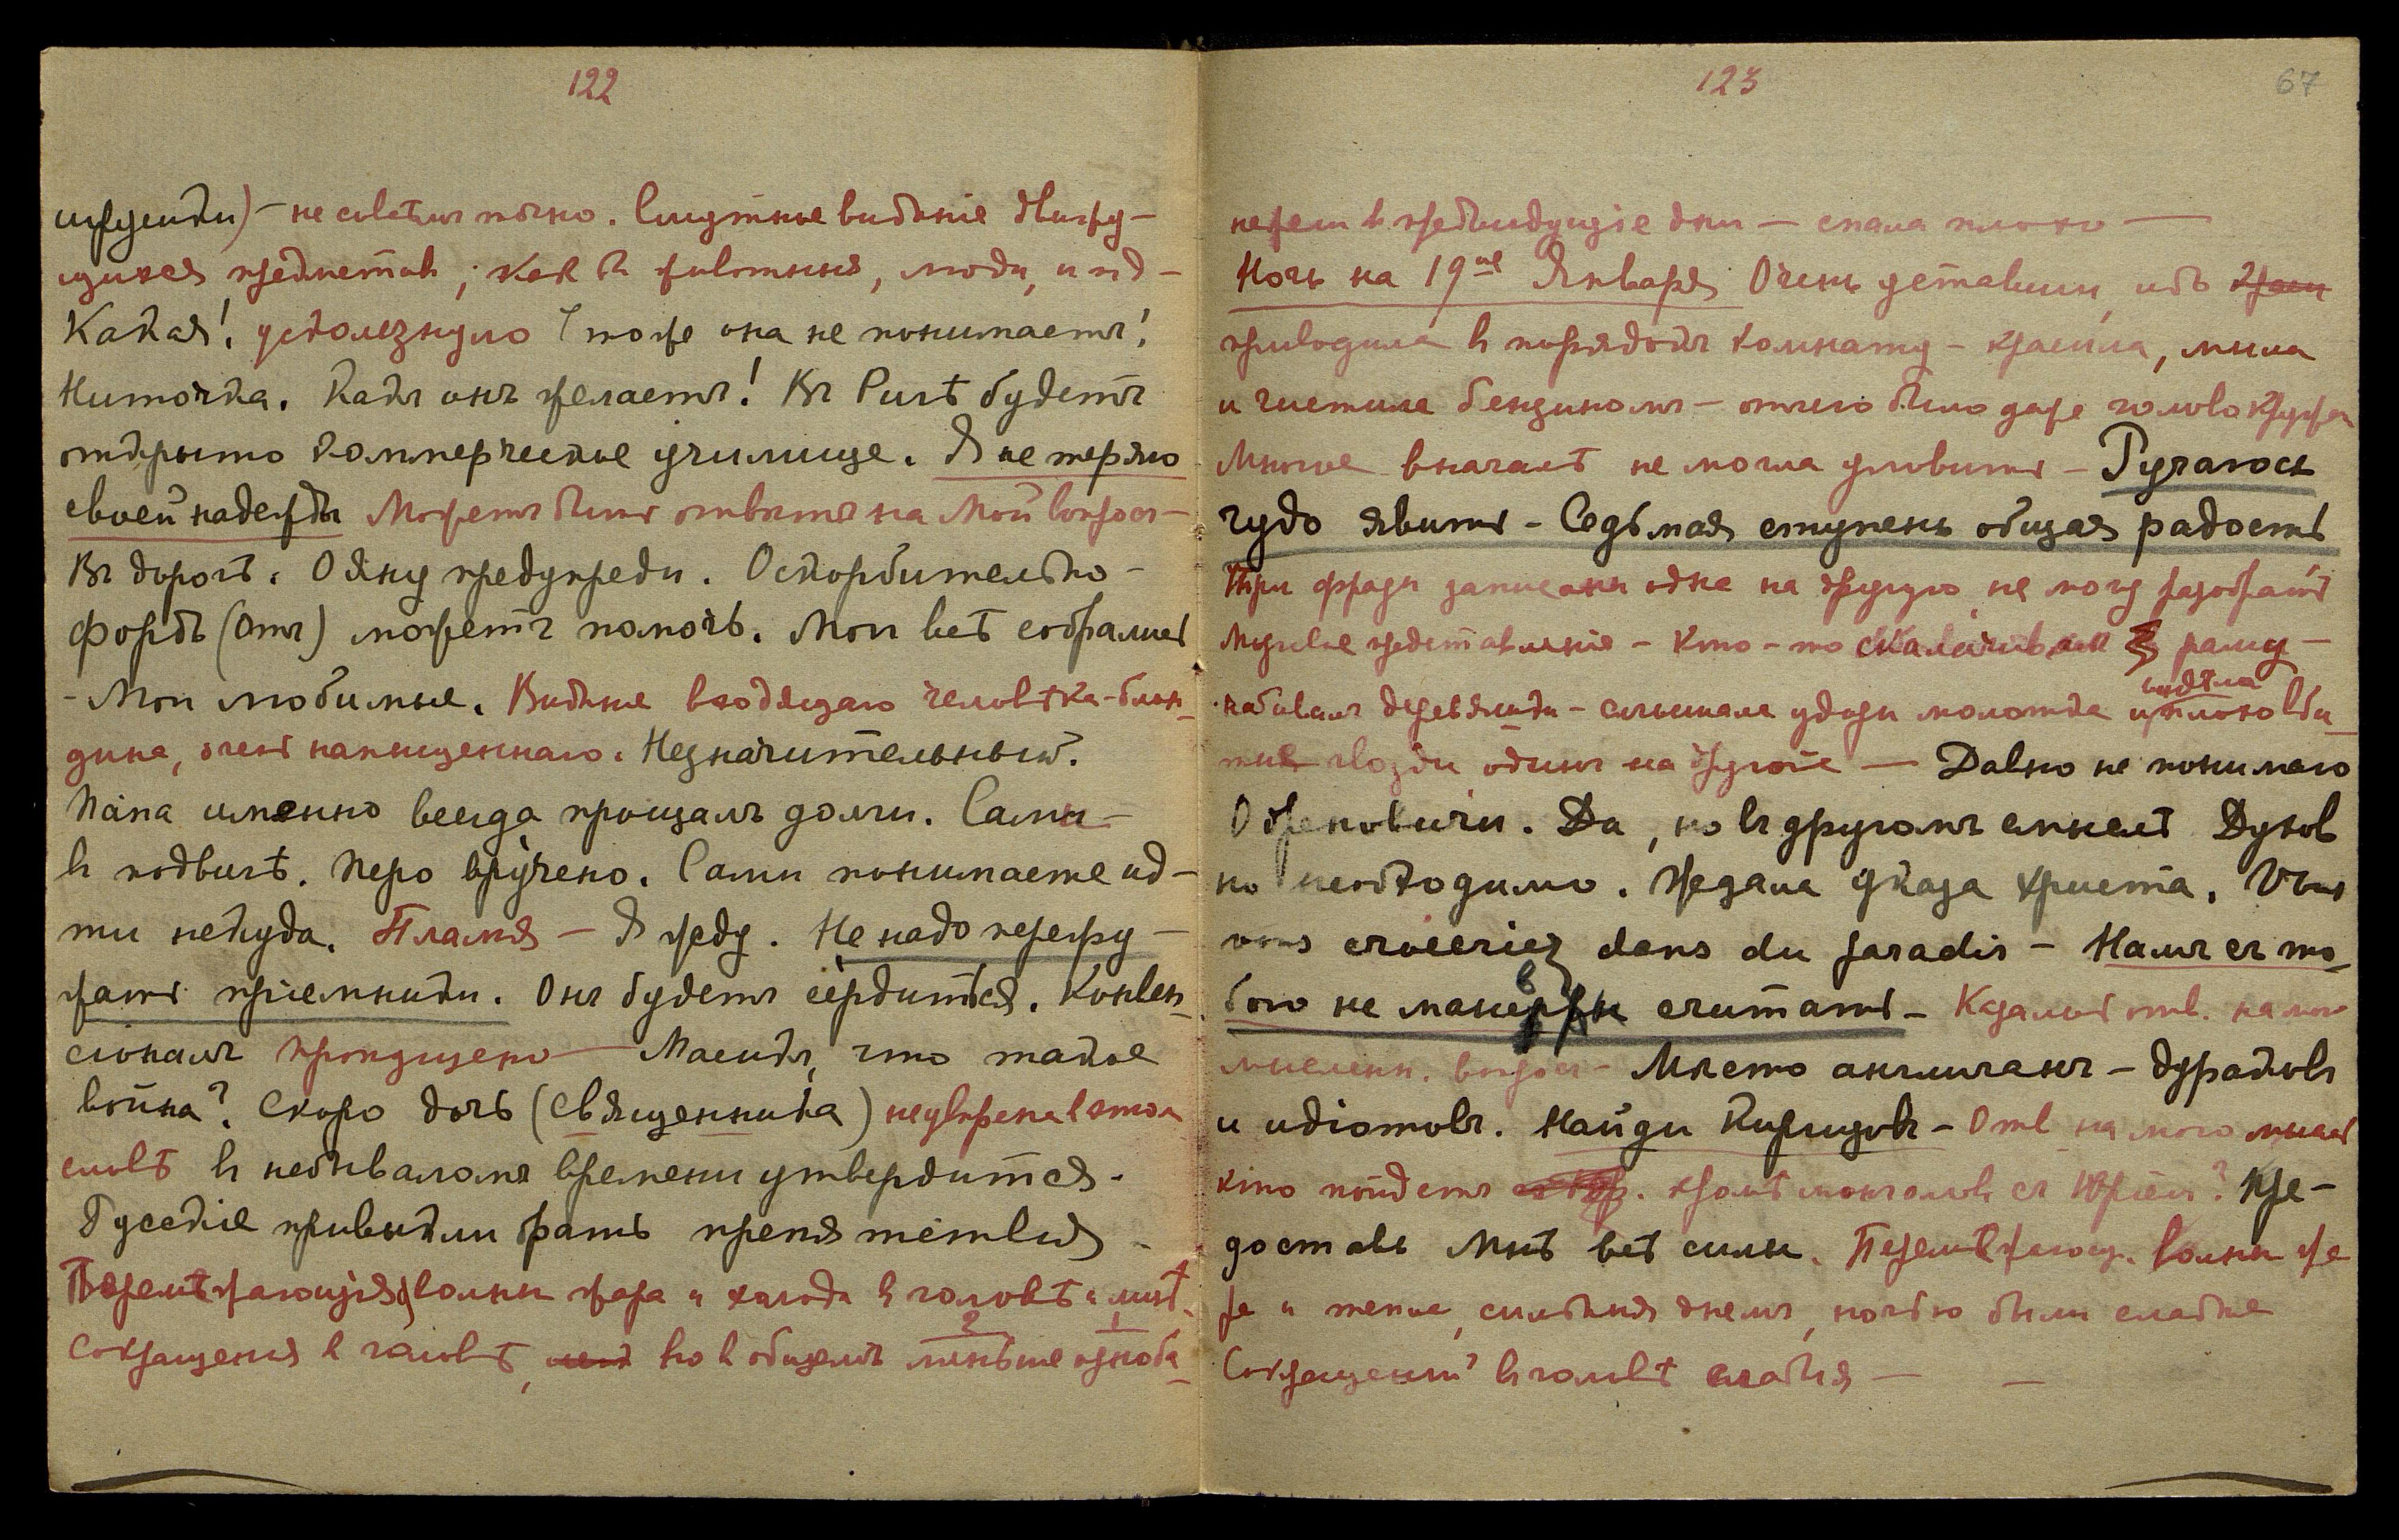 122
не совсѣмъ точно. Смутные видѣніе движу-
щихся предметовъ, какъ бы животныя, люди, и пр -
Какая! ускользнуло тоже она не понимаетъ!
Ниточка. Какъ онъ желаетъ! Въ Ригѣ будетъ
открыто коммерческое училище. Я не теряю
своей надежды Можетъ быть отвѣтъ на мой вопросъ -
Въ дорогѣ. Ояну предупреди. Оскорбительно -
Фордъ (Отъ) можетъ помочь. Мои всѣ собрались
- Мои любимые. Видѣніе входящаго человѣка-блон-
дина, очень напыщеннаго. Незначительный.
Папа именно всегда прощалъ долги. Сами -
в подвигѣ. Перо вручено. Сами понимаете ид-
ти некуда. Пламя - Я жду. Не надо перегру -
жать приемники. Онъ будетъ сердиться. Конвен-
сіоналъ пропущено - Масикъ, что такое
война? Скоро дочь (священника) неувѣрена в этом
словѣ в небываломъ времени утвердится.
Русскіе привыкли брать препятствия -
Перемежающіяся волны жара и холода в головѣ и
сокращения в головѣ, но в общемъ меньше озноба
123
67
нежели в предыдущіе дни - спала плохо -
Ночь на 19ое Января Очень уставши, ибо
приводила в порядокъ комнату - красила, мыла
и чистила бензиномъ - отчего было даже головокруж
Многое вначалѣ не могла уловить - Ручаюсь
чудо явить - Седьмая ступень общая радость
Три фразы записаны одна на другую, не могу разобрать
представления - Кто-то сколачивал раму -
набивалъ деревяшки - слышала удары молотка и видѣла плохо вби
тые гвозди один на другой - Давно не понимаю
О Яновичи. Да, но в другомъ смыслѣ Духов
но необходимо. Ждала указа Христа. Vous
vous croieriez dans du paradis - Намъ съ то-
бою не маневры считать - Казалось отв. на мой
мысленн. вопросъ - Много англичанъ - дураковъ
и идіотовъ. Найди Киргизовъ - Отв на мою мысль
кто пойдетъ кромѣ монголовъ съ Юріем? Пре-
доставь Мнѣ всѣ силы. Перемежающ. волны жа
ра и тепла, сильныя днемъ, ночью были слабые
Сокращений в головѣ слабыя -